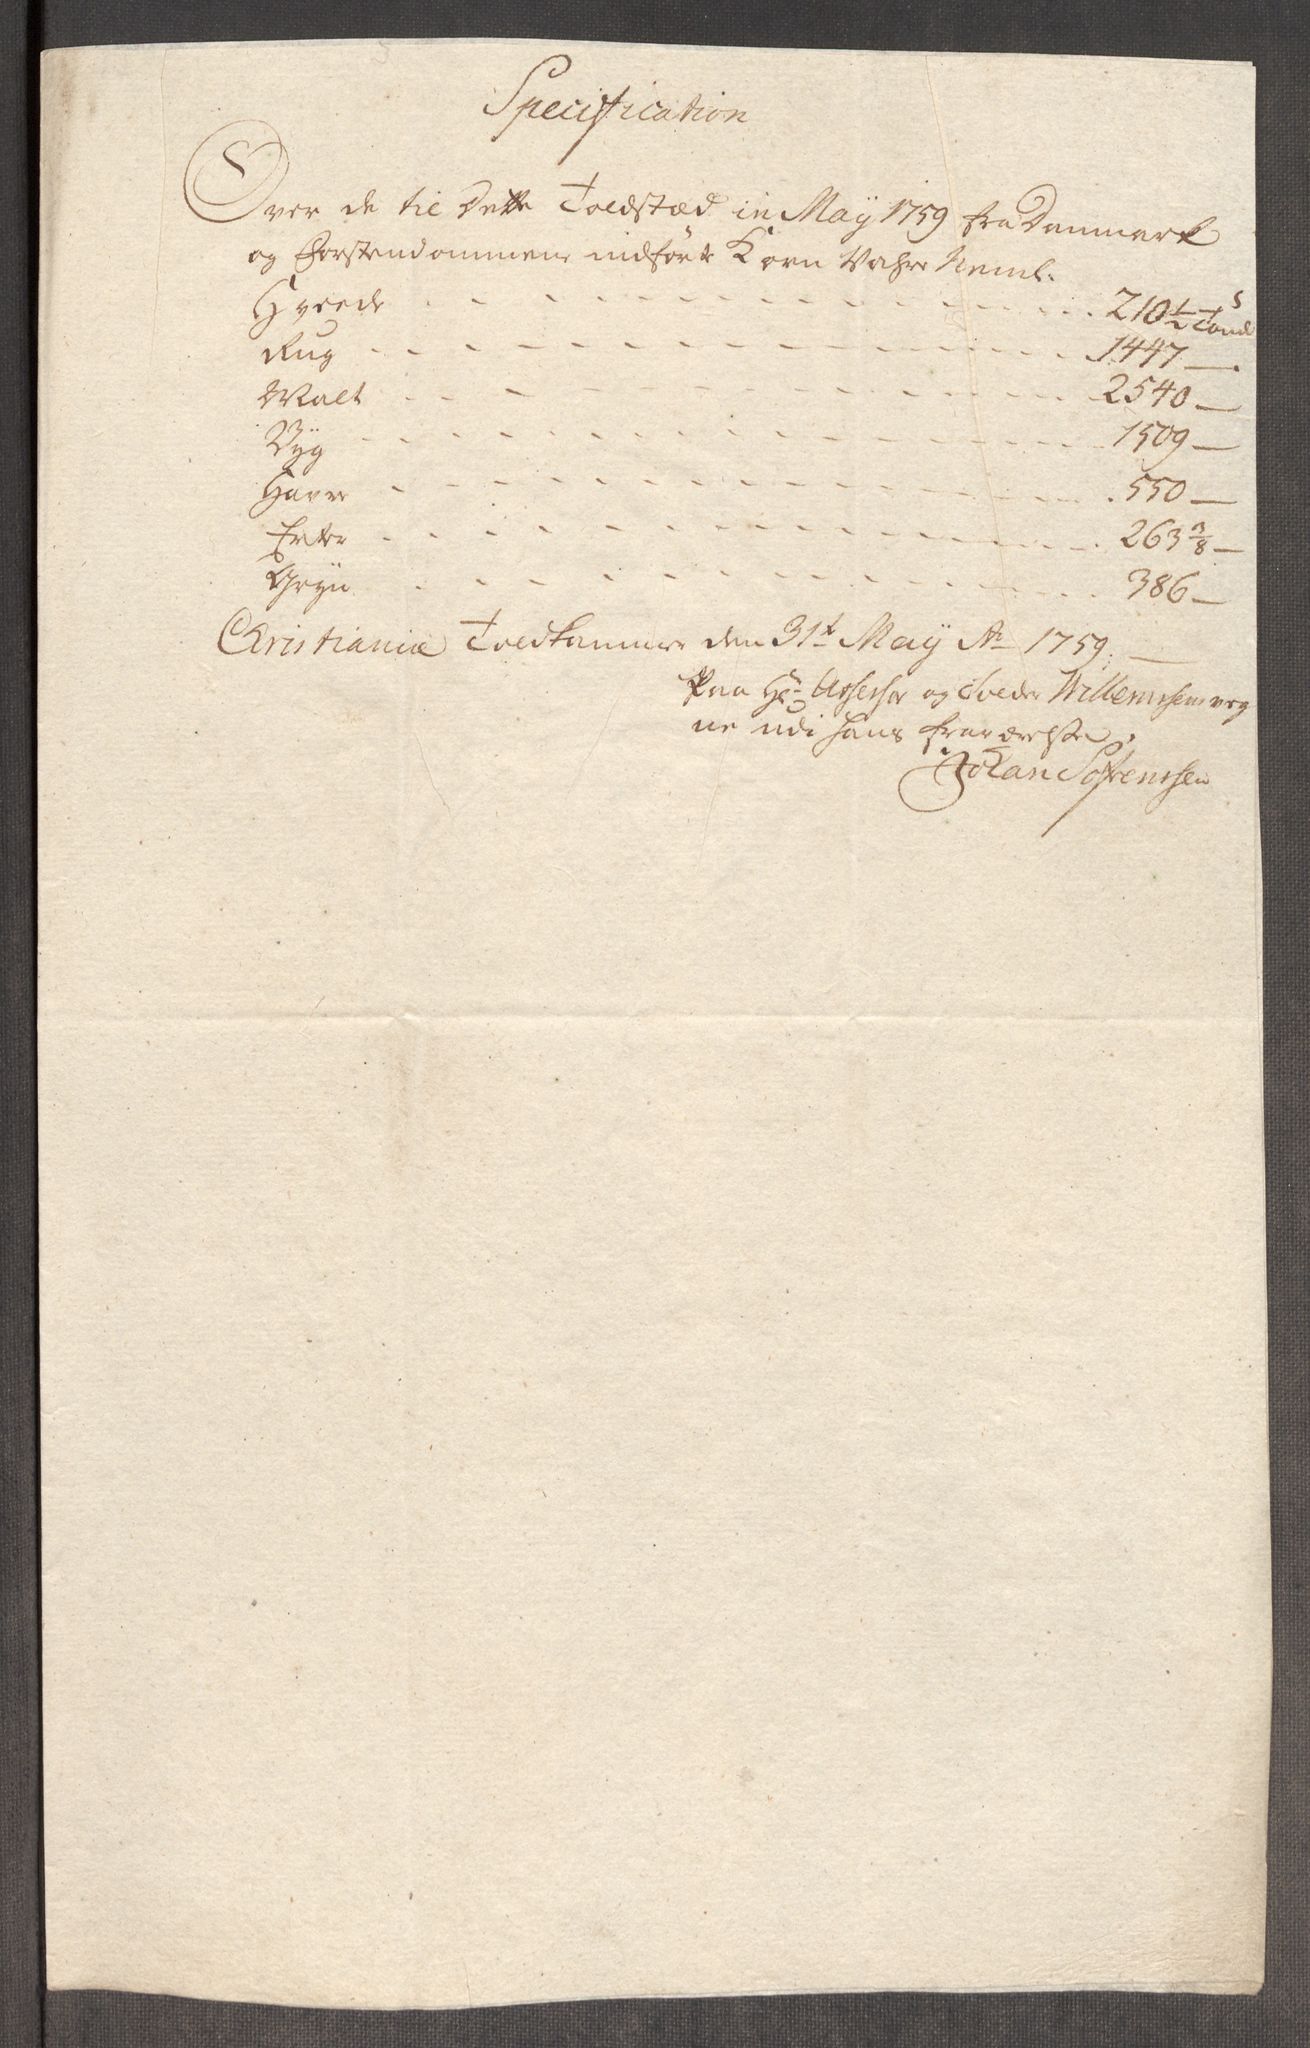 Specification
Over de til Dette Toldstæd in Maÿ 1759 fra Danmark
og Førstendommene indførte Korn Vahre Neml.
Hveede 210 1/2 Tønds
Rug 1447 —
Malt 2540 —
Byg 1509 —
Havre 550 —
Erter 263 3/8 —
Gryn 386 —
Christianiæ Toldkammer den 31t Maÿ Ao 1759.
Paa Hr Assessor og Tolder Willemsens veg
ne udi hans fraværelse,
Johan Sørensen